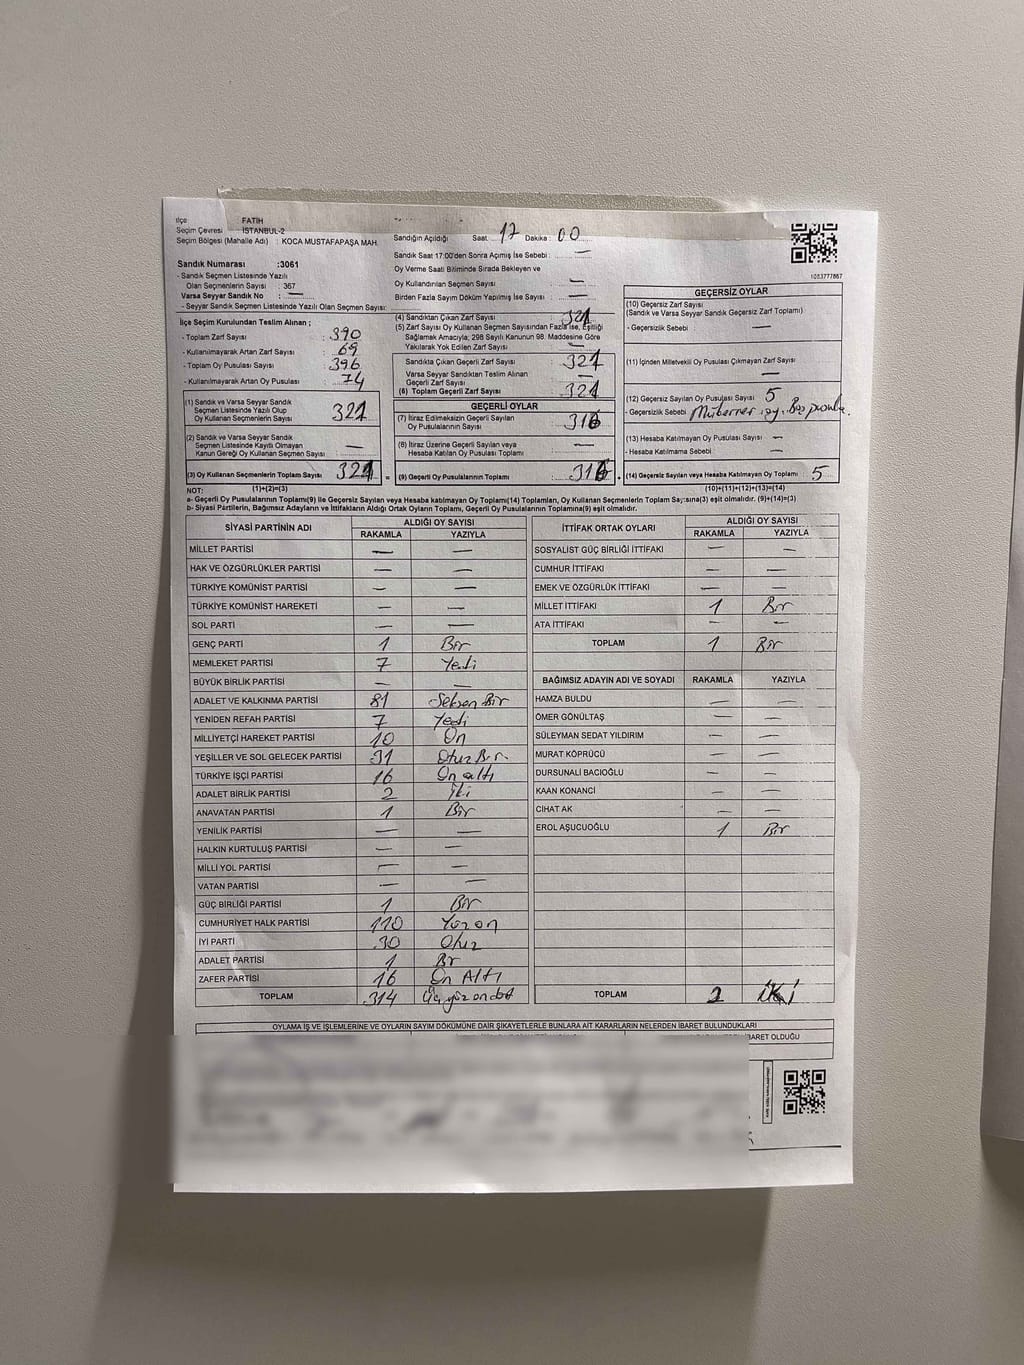 İlçe FATİH
Seçim Çevresi İSTANBUL-2
Seçim Bölgesi (Mahalle Adı) : KOCA MUSTAFAPAŞA MAH.
Sandık Numarası :3061
- Sandık Seçmen Listesinde Yazılı
Olan Seçmenlerin Sayısı : 367
Varsa Seyyar Sandık No : —
- Seyyar Sandık Seçmen Listesinde Yazılı Olan Seçmen Sayısı:
İlçe Seçim Kurulundan Teslim Alınan ;
- Toplam Zarf Sayısı : 390
- Kullanılmayarak Artan Zarf Sayısı : 69
- Toplam Oy Pusulası : 396
- Kullanılmayarak Artan Oy Pusulası : 74
(1) Sandık ve Varsa Seyyar Sandık
Seçmen Listesinde Yazılı Olup
Oy Kullanan Seçmenlerin Sayısı 321
(2) Sandık ve Varsa Seyyar Sandık
Seçmen Listesinde Kayıtlı Olmayan
Kanun Gereği Oy Kullanan Seçmen Sayısı —
(3) Oy Kullanan Seçmenlerin Toplam Sayısı 321
(1)+(2)=(3)
Sandığın Açıldığı Saat: 17 Dakika: 00
Sandık Saat 17:00'den Sonra Açılmış İse Sebebi : —
Oy Verme Saati Bitiminde Sırada Bekleyen ve
Oy Kullandırılan Seçmen Sayısı : —
Birden Fazla Sayım Döküm Yapılmış İse Sayısı : —
(4) Sandıktan Çıkan Zarf Sayısı : 321
(5) Zarf Sayısı Oy Kullanan Seçmen Sayısından Fazla ise, Eşitliği
Sağlamak Amacıyla; 298 Sayılı Kanunun 98. Maddesine Göre
Yakılarak Yok Edilen Zarf Sayısı : —
Sandıkta Çıkan Geçerli Zarf Sayısı : 321
Varsa Seyyar Sandıktan Teslim Alınan
Geçerli Zarf Sayısı : —
(6) Toplam Geçerli Zarf Sayısı : 321
GEÇERLİ OYLAR
(7) İtiraz Edilmeksizin Geçerli Sayılan
Oy Pusulalarının Sayısı : 316
(8) İtiraz Üzerine Geçerli Sayılan veya
Hesaba Katılan Oy Pusulası Toplamı : —
= (9) Geçerli Oy Pusulalarının Toplamı : 316
1083777867
GEÇERSİZ OYLAR
(10) Geçersiz Zarf Sayısı
(Sandık ve Varsa Seyyar Sandık Geçersiz Zarf Toplamı)
- Geçersizlik Sebebi : —
(11) İçinden Milletvekili Oy Pusulası Çıkmayan Zarf Sayısı
: —
(12) Geçersiz Sayılan Oy Pusulası Sayısı : 5
- Geçersizlik Sebebi :
(13) Hesaba Katılmayan Oy Pusulası Sayısı : —
- Hesaba Katılmama Sebebi : —
+ (14) Geçersiz Sayılan veya Hesaba Katılmayan Oy Toplamı : 5
(10)+(11)+(12)+(13)=(14)
NOT:
a- Geçerli Oy Pusulalarının Toplamı(9) ile Geçersiz Sayılan veya Hesaba katılmayan Oy Toplamı(14) Toplamları, Oy Kullanan Seçmenlerin Toplam Sayısına(3) eşit olmalıdır. (9)+(14)=(3)
b- Siyasi Partilerin, Bağımsız Adayların ve İttifakların Aldığı Ortak Oyların Toplamı, Geçerli Oy Pusulalarının Toplamına(9) eşit olmalıdır.
SİYASİ PARTİNİN ADI ALDIĞI OY SAYISI
RAKAMLA YAZIYLA
MİLLET PARTİSİ — —
HAK VE ÖZGÜRLÜKLER PARTİSİ — —
TÜRKİYE KOMÜNİST PARTİSİ — —
TÜRKİYE KOMÜNİST HAREKETİ — —
SOL PARTİ — —
GENÇ PARTİ 1 Bir
MEMLEKET PARTİSİ 7 Yedi
BÜYÜK BİRLİK PARTİSİ — —
ADALET VE KALKINMA PARTİSİ 81 Seksen Bir
YENİDEN REFAH PARTİSİ 7 Yedi
MİLLİYETÇİ HAREKET PARTİSİ 10 On
YEŞİLLER VE SOL GELECEK PARTİSİ 31 Otuz Bir
TÜRKİYE İŞÇİ PARTİSİ 16 On altı
ADALET BİRLİK PARTİSİ 2 İki
ANAVATAN PARTİSİ 1 Bir
YENİLİK PARTİSİ — —
HALKIN KURTULUŞ PARTİSİ — —
MİLLİ YOL PARTİSİ — —
VATAN PARTİSİ — —
GÜÇ BİRLİĞİ PARTİSİ 1 Bir
CUMHURİYET HALK PARTİSİ 110 Yüz on
İYİ PARTİ 30 Otuz
ADALET PARTİSİ 1 Bir
ZAFER PARTİSİ 16 On Altı
TOPLAM 314 Üç yüz ondört
İTTİFAK ORTAK OYLARI ALDIĞI OY SAYISI
RAKAMLA YAZIYLA
SOSYALİST GÜÇ BİRLİĞİ İTTİFAKI — —
CUMHUR İTTİFAKI — —
EMEK VE ÖZGÜRLÜK İTTİFAKI — —
MİLLET İTTİFAKI 1 Bir
ATA İTTİFAKI — —
TOPLAM 1 Bir
BAĞIMSIZ ADAYIN ADI VE SOYADI RAKAMLA YAZIYLA
HAMZA BULDU — —
ÖMER GÖNÜLTAŞ — —
SÜLEYMAN SEDAT YILDIRIM — —
MURAT KÖPRÜCÜ — —
DURSUNALİ BACIOĞLU — —
KAAN KONANCİ — —
CİHAT AK — —
EROL AŞUCUOĞLU 1 Bir
TOPLAM 2 İki
OYLAMA İŞ VE İŞLEMLERİNE VE OYLARIN SAYIM DÖKÜMÜNE DAİR ŞİKAYETLERLE BUNLARA AİT KARARLARIN NELERDEN İBARET BULUNDUKLARI
İBARET OLDUĞU